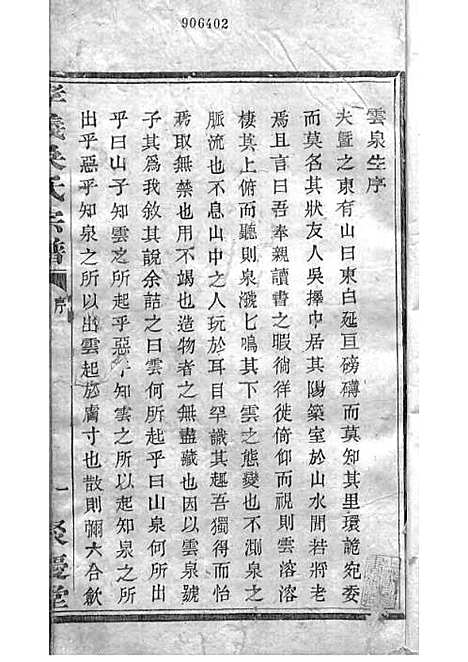 906402
雲泉生序
夫暨之東有山曰東白延亘磅礴而莫知其里環詭宛委
而莫名其狀友人吳擇中居其陽築室於山水間若將老
焉且言曰吾奉親讀書之暇徜徉徙倚仰而視則雲溶溶
棲其上俯而聽則泉濺匕鳴其下雲之態變也不測泉之
脈流也不息山中之人玩於耳目罕識其趣吾獨得而怡
焉取無禁也用不竭也造物者之無盡藏也因以雲泉號
子其爲我敘其說余詰之曰雲何所起乎曰山泉何所出
乎曰山子知雲之所起乎惡乎知雲之所以起知泉之所
出乎惡乎知泉之所以出雲起於膚寸也散則彌六合斂
孝義吳氏宗譜 序 一 聚慶堂